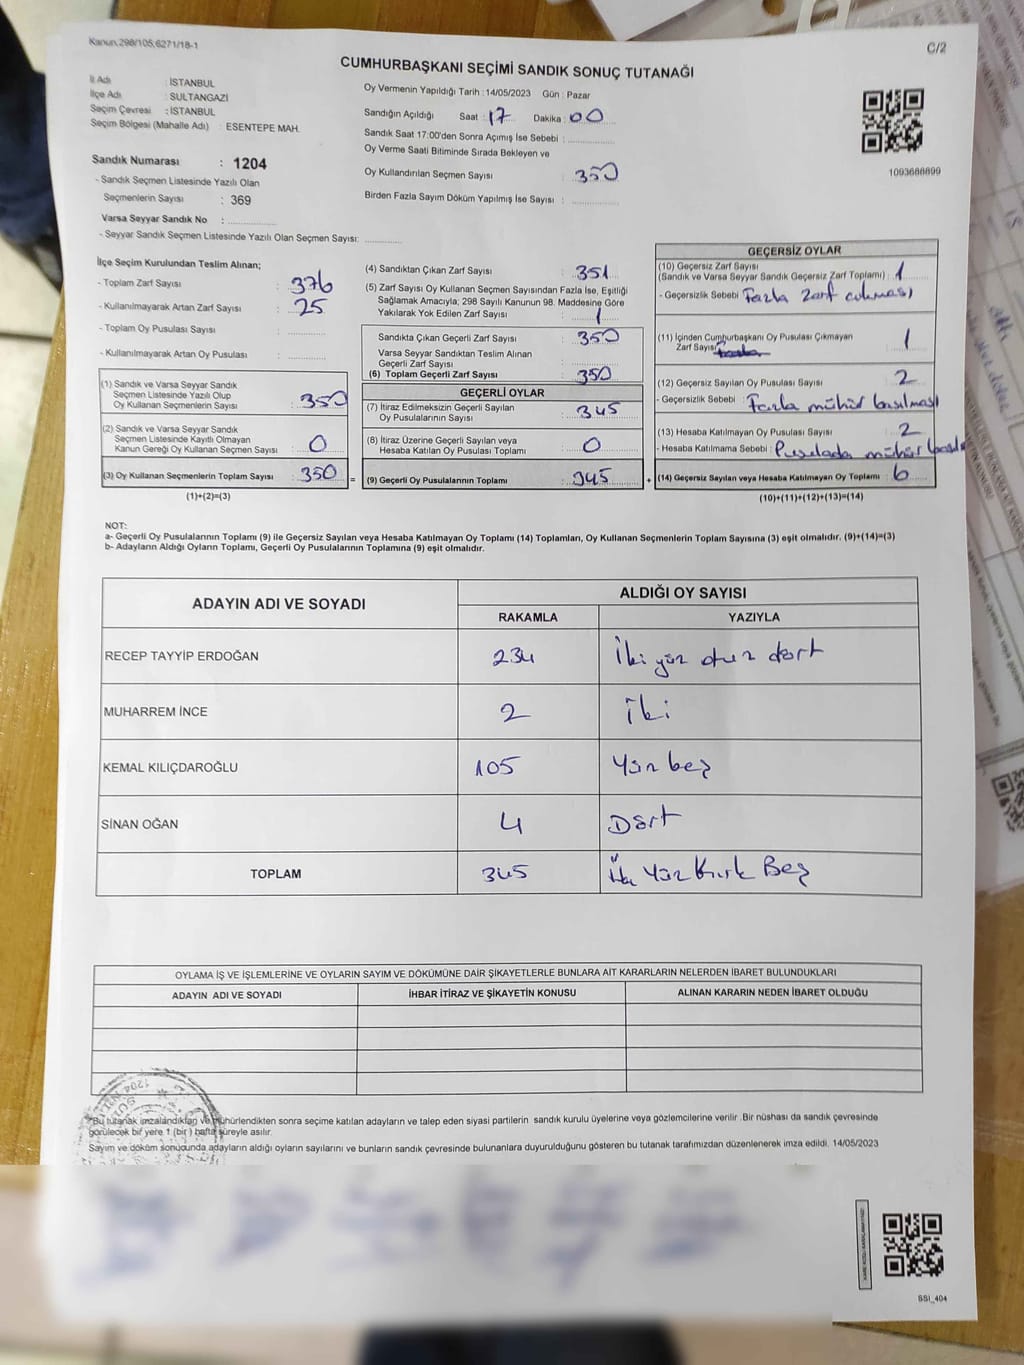 Kanun,298/105,6271/18-1
C/2
CUMHURBAŞKANI SEÇİMİ SANDIK SONUÇ TUTANAĞI
İl Adı : İSTANBUL
İlçe Adı : SULTANGAZİ
Seçim Çevresi : İSTANBUL
Seçim Bölgesi (Mahalle Adı) : ESENTEPE MAH.
Sandık Numarası : 1204
- Sandık Seçmen Listesinde Yazılı Olan
Seçmenlerin Sayısı : 369
Varsa Seyyar Sandık No :
- Seyyar Sandık Seçmen Listesinde Yazılı Olan Seçmen Sayısı:
Oy Vermenin Yapıldığı Tarih : 14/05/2023 Gün : Pazar
Sandığın Açıldığı Saat : 17 Dakika : 00
Sandık Saat 17:00'den Sonra Açımış İse Sebebi :
Oy Verme Saati Bitiminde Sırada Bekleyen ve
Oy Kullandırılan Seçmen Sayısı : 350
Birden Fazla Sayım Döküm Yapılmış İse Sayısı :
1093688899
İlçe Seçim Kurulundan Teslim Alınan;
- Toplam Zarf Sayısı : 376
- Kullanılmayarak Artan Zarf Sayısı : 25
- Toplam Oy Pusulası Sayısı :
- Kullanılmayarak Artan Oy Pusulası :
(1) Sandık ve Varsa Seyyar Sandık
Seçmen Listesinde Yazılı Olup
Oy Kullanan Seçmenlerin Sayısı : 350
(2) Sandık ve Varsa Seyyar Sandık
Seçmen Listesinde Kayıtlı Olmayan
Kanun Gereği Oy Kullanan Seçmen Sayısı : 0
(3) Oy Kullanan Seçmenlerin Toplam Sayısı : 350 =
(1)+(2)=(3)
(4) Sandıktan Çıkan Zarf Sayısı : 351
(5) Zarf Sayısı Oy Kullanan Seçmen Sayısından Fazla İse, Eşitliği
Sağlamak Amacıyla; 298 Sayılı Kanunun 98. Maddesine Göre
Yakılarak Yok Edilen Zarf Sayısı : 1
Sandıkta Çıkan Geçerli Zarf Sayısı : 350
Varsa Seyyar Sandıktan Teslim Alınan
Geçerli Zarf Sayısı :
(6) Toplam Geçerli Zarf Sayısı : 350
GEÇERLİ OYLAR
(7) İtiraz Edilmeksizin Geçerli Sayılan
Oy Pusulalarının Sayısı : 345
(8) İtiraz Üzerine Geçerli Sayılan veya
Hesaba Katılan Oy Pusulası Toplamı : 0
(9) Geçerli Oy Pusulalarının Toplamı : 345 +
GEÇERSİZ OYLAR
(10) Geçersiz Zarf Sayısı
(Sandık ve Varsa Seyyar Sandık Geçersiz Zarf Toplamı) : 1
- Geçersizlik Sebebi : Fazla zarf cıkması
(11) İçinden Cumhurbaşkanı Oy Pusulası Çıkmayan
Zarf Sayısı : 1
(12) Geçersiz Sayılan Oy Pusulası Sayısı : 2
- Geçersizlik Sebebi : Fazla mühür basılması
(13) Hesaba Katılmayan Oy Pusulası Sayısı : 2
- Hesaba Katılmama Sebebi : Pusulada mühür
(14) Geçersiz Sayılan veya Hesaba Katılmayan Oy Toplamı : 6
(10)+(11)+(12)+(13)=(14)
NOT:
a- Geçerli Oy Pusulalarının Toplamı (9) ile Geçersiz Sayılan veya Hesaba Katılmayan Oy Toplamı (14) Toplamları, Oy Kullanan Seçmenlerin Toplam Sayısına (3) eşit olmalıdır. (9)+(14)=(3)
b- Adayların Aldığı Oyların Toplamı, Geçerli Oy Pusulalarının Toplamına (9) eşit olmalıdır.
ADAYIN ADI VE SOYADI ALDIĞI OY SAYISI
RAKAMLA YAZIYLA
RECEP TAYYİP ERDOĞAN 234 İki yüz otuz dört
MUHARREM İNCE 2 İki
KEMAL KILIÇDAROĞLU 105 Yüz beş
SİNAN OĞAN 4 Dört
TOPLAM 345 Üç Yüz Kırk Beş
OYLAMA İŞ VE İŞLEMLERİNE VE OYLARIN SAYIM VE DÖKÜMÜNE DAİR ŞİKAYETLERLE BUNLARA AİT KARARLARIN NELERDEN İBARET BULUNDUKLARI
ADAYIN ADI VE SOYADI İHBAR İTİRAZ VE ŞİKAYETİN KONUSU ALINAN KARARIN NEDEN İBARET OLDUĞU
1204
*Bu tutanak imzalandıktan ve mühürlendikten sonra seçime katılan adayların ve talep eden siyasi partilerin sandık kurulu üyelerine veya gözlemcilerine verilir .Bir nüshası da sandık çevresinde
görülecek bir yere 1 (bir ) hafta süreyle asılır.
Sayım ve döküm sonucunda adayların aldığı oyların sayılarını ve bunların sandık çevresinde bulunanlara duyurulduğunu gösteren bu tutanak tarafımızdan düzenlenerek imza edildi. 14/05/2023
SSI_404